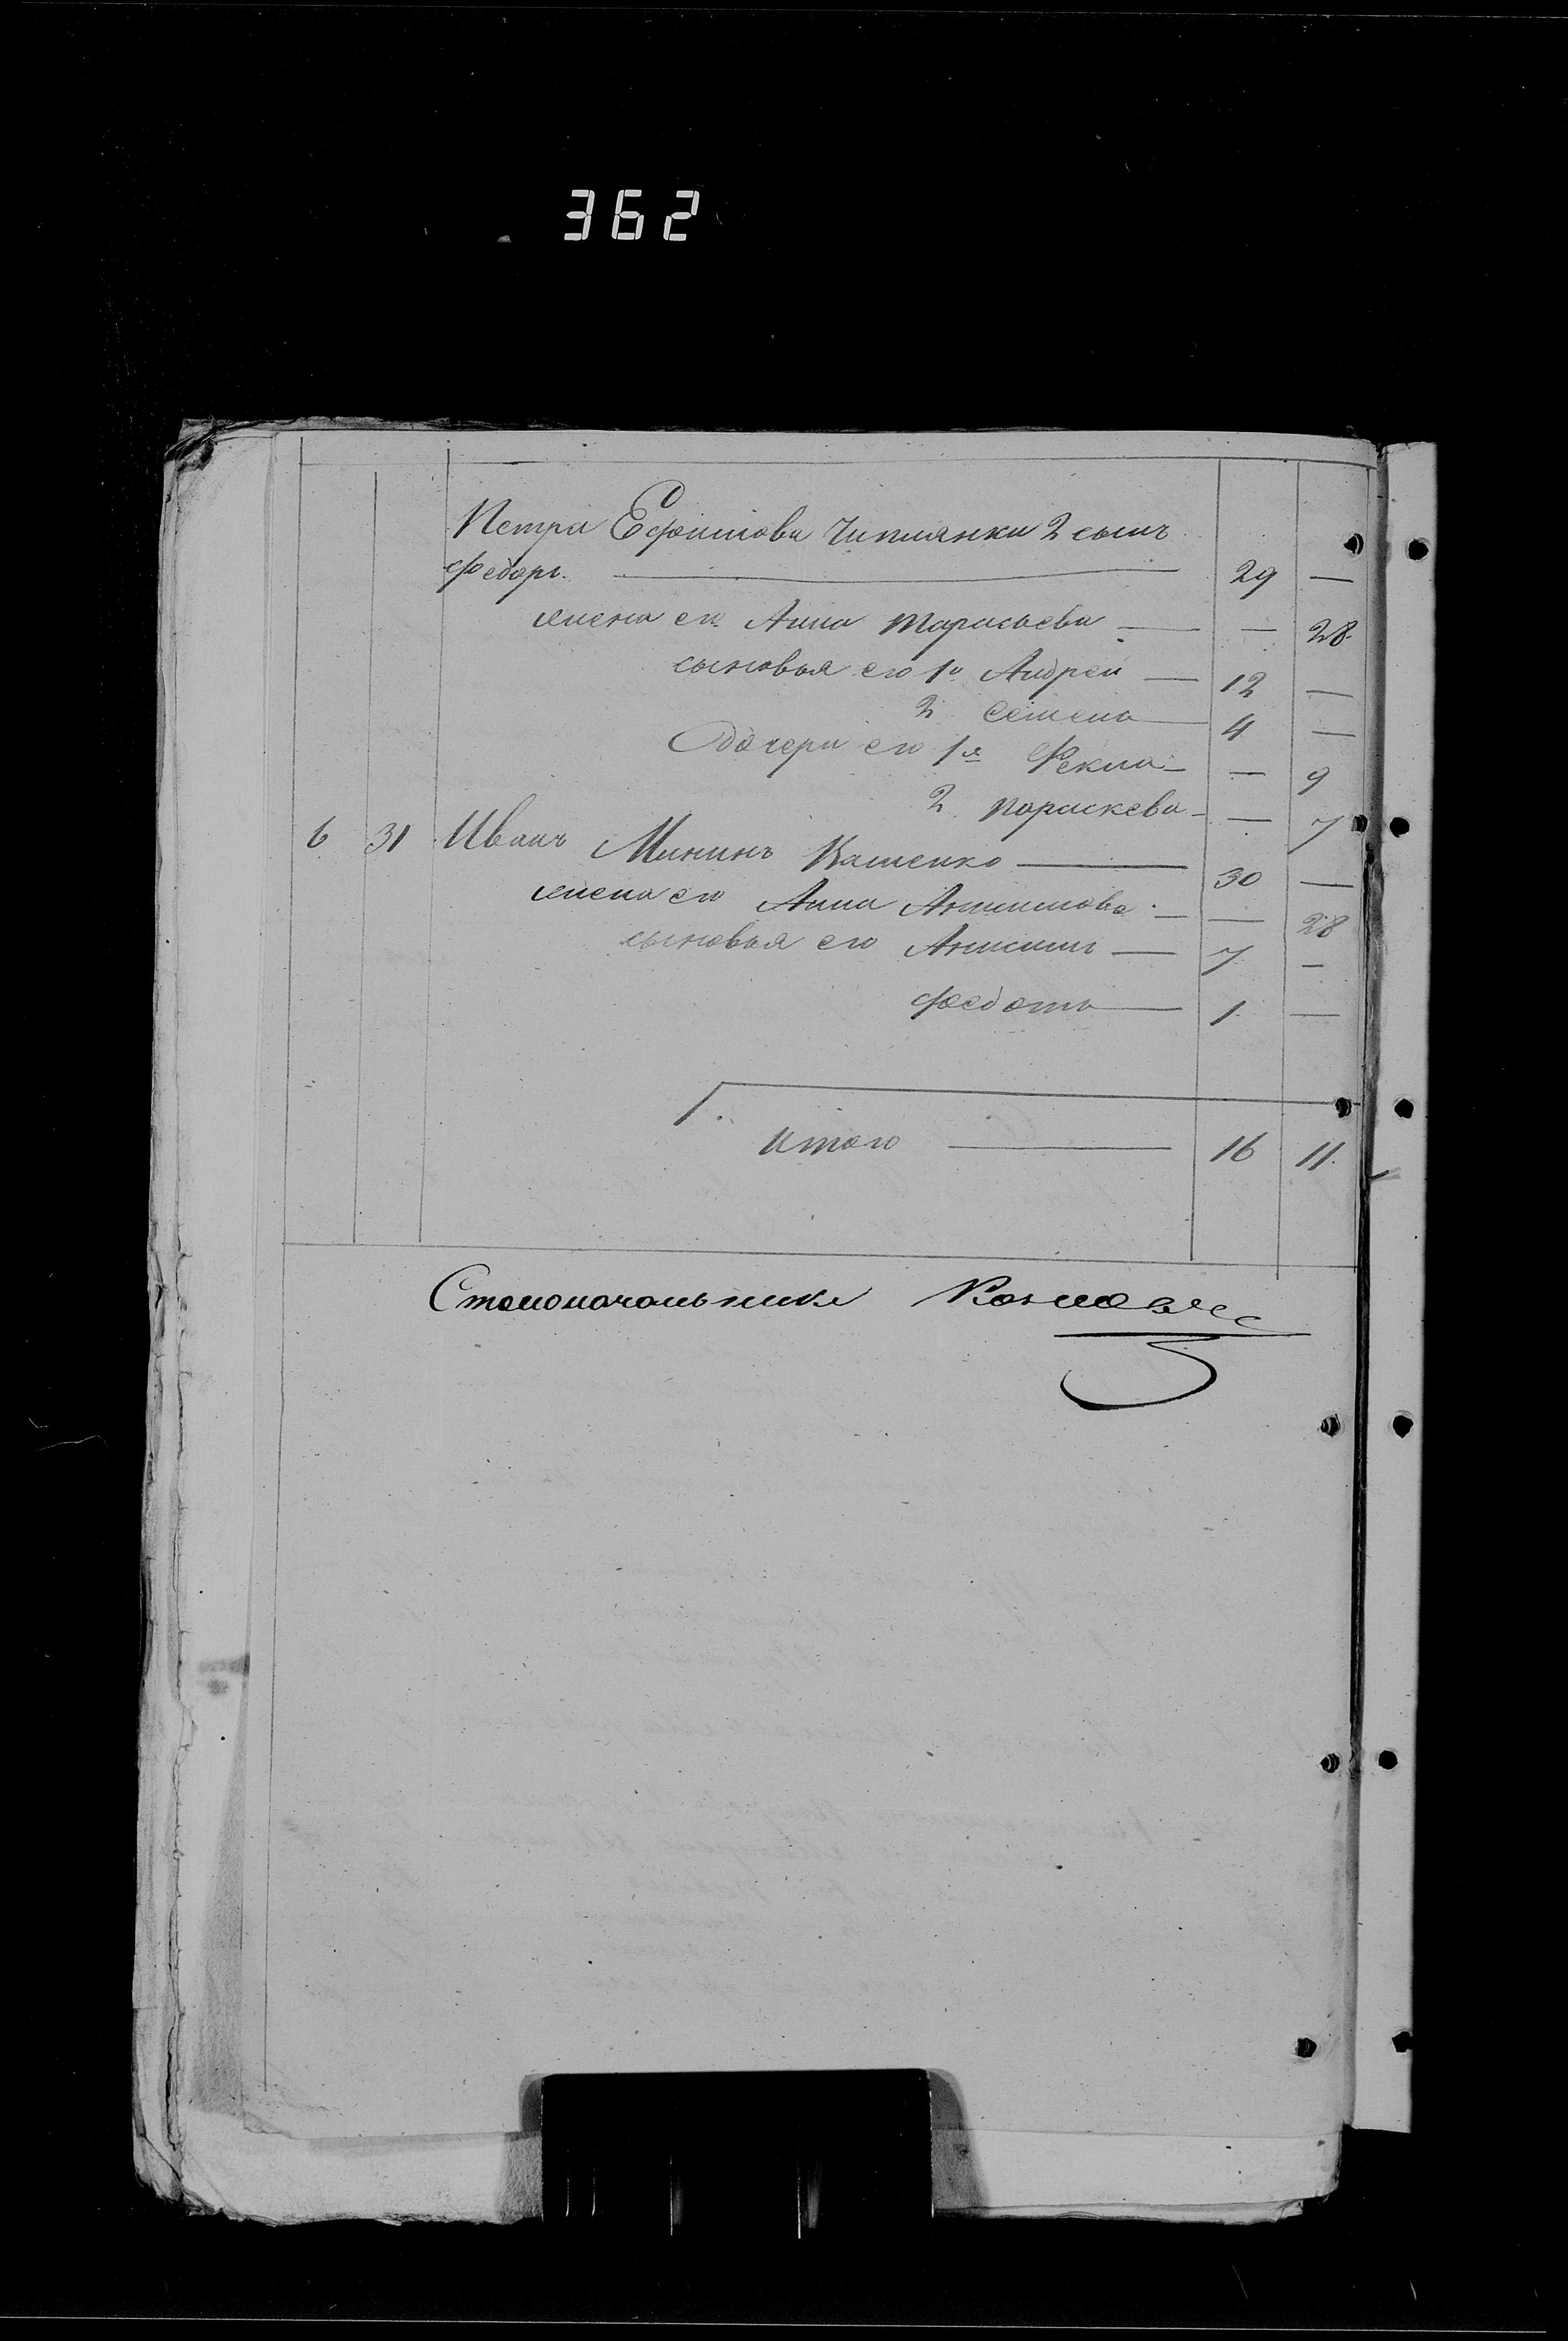 362
Петра Ефимова Чиплянки 2 сынъ
Федоръ. — 29 —
жена его Анна Тарасьева — — 28
сыновья его 1й Андрей — 12 —
2 Семенъ — 4 —
Дочери его 1я Фекла — — 9
2. Параскева — — 7
6 31 Иванъ Мининъ — 30 —
жена его Анна Анисимова — — 28
сыновья его Анисимъ — 7 —
Федотъ — 1 —
Итого — 16 11.
Столоначальникъ